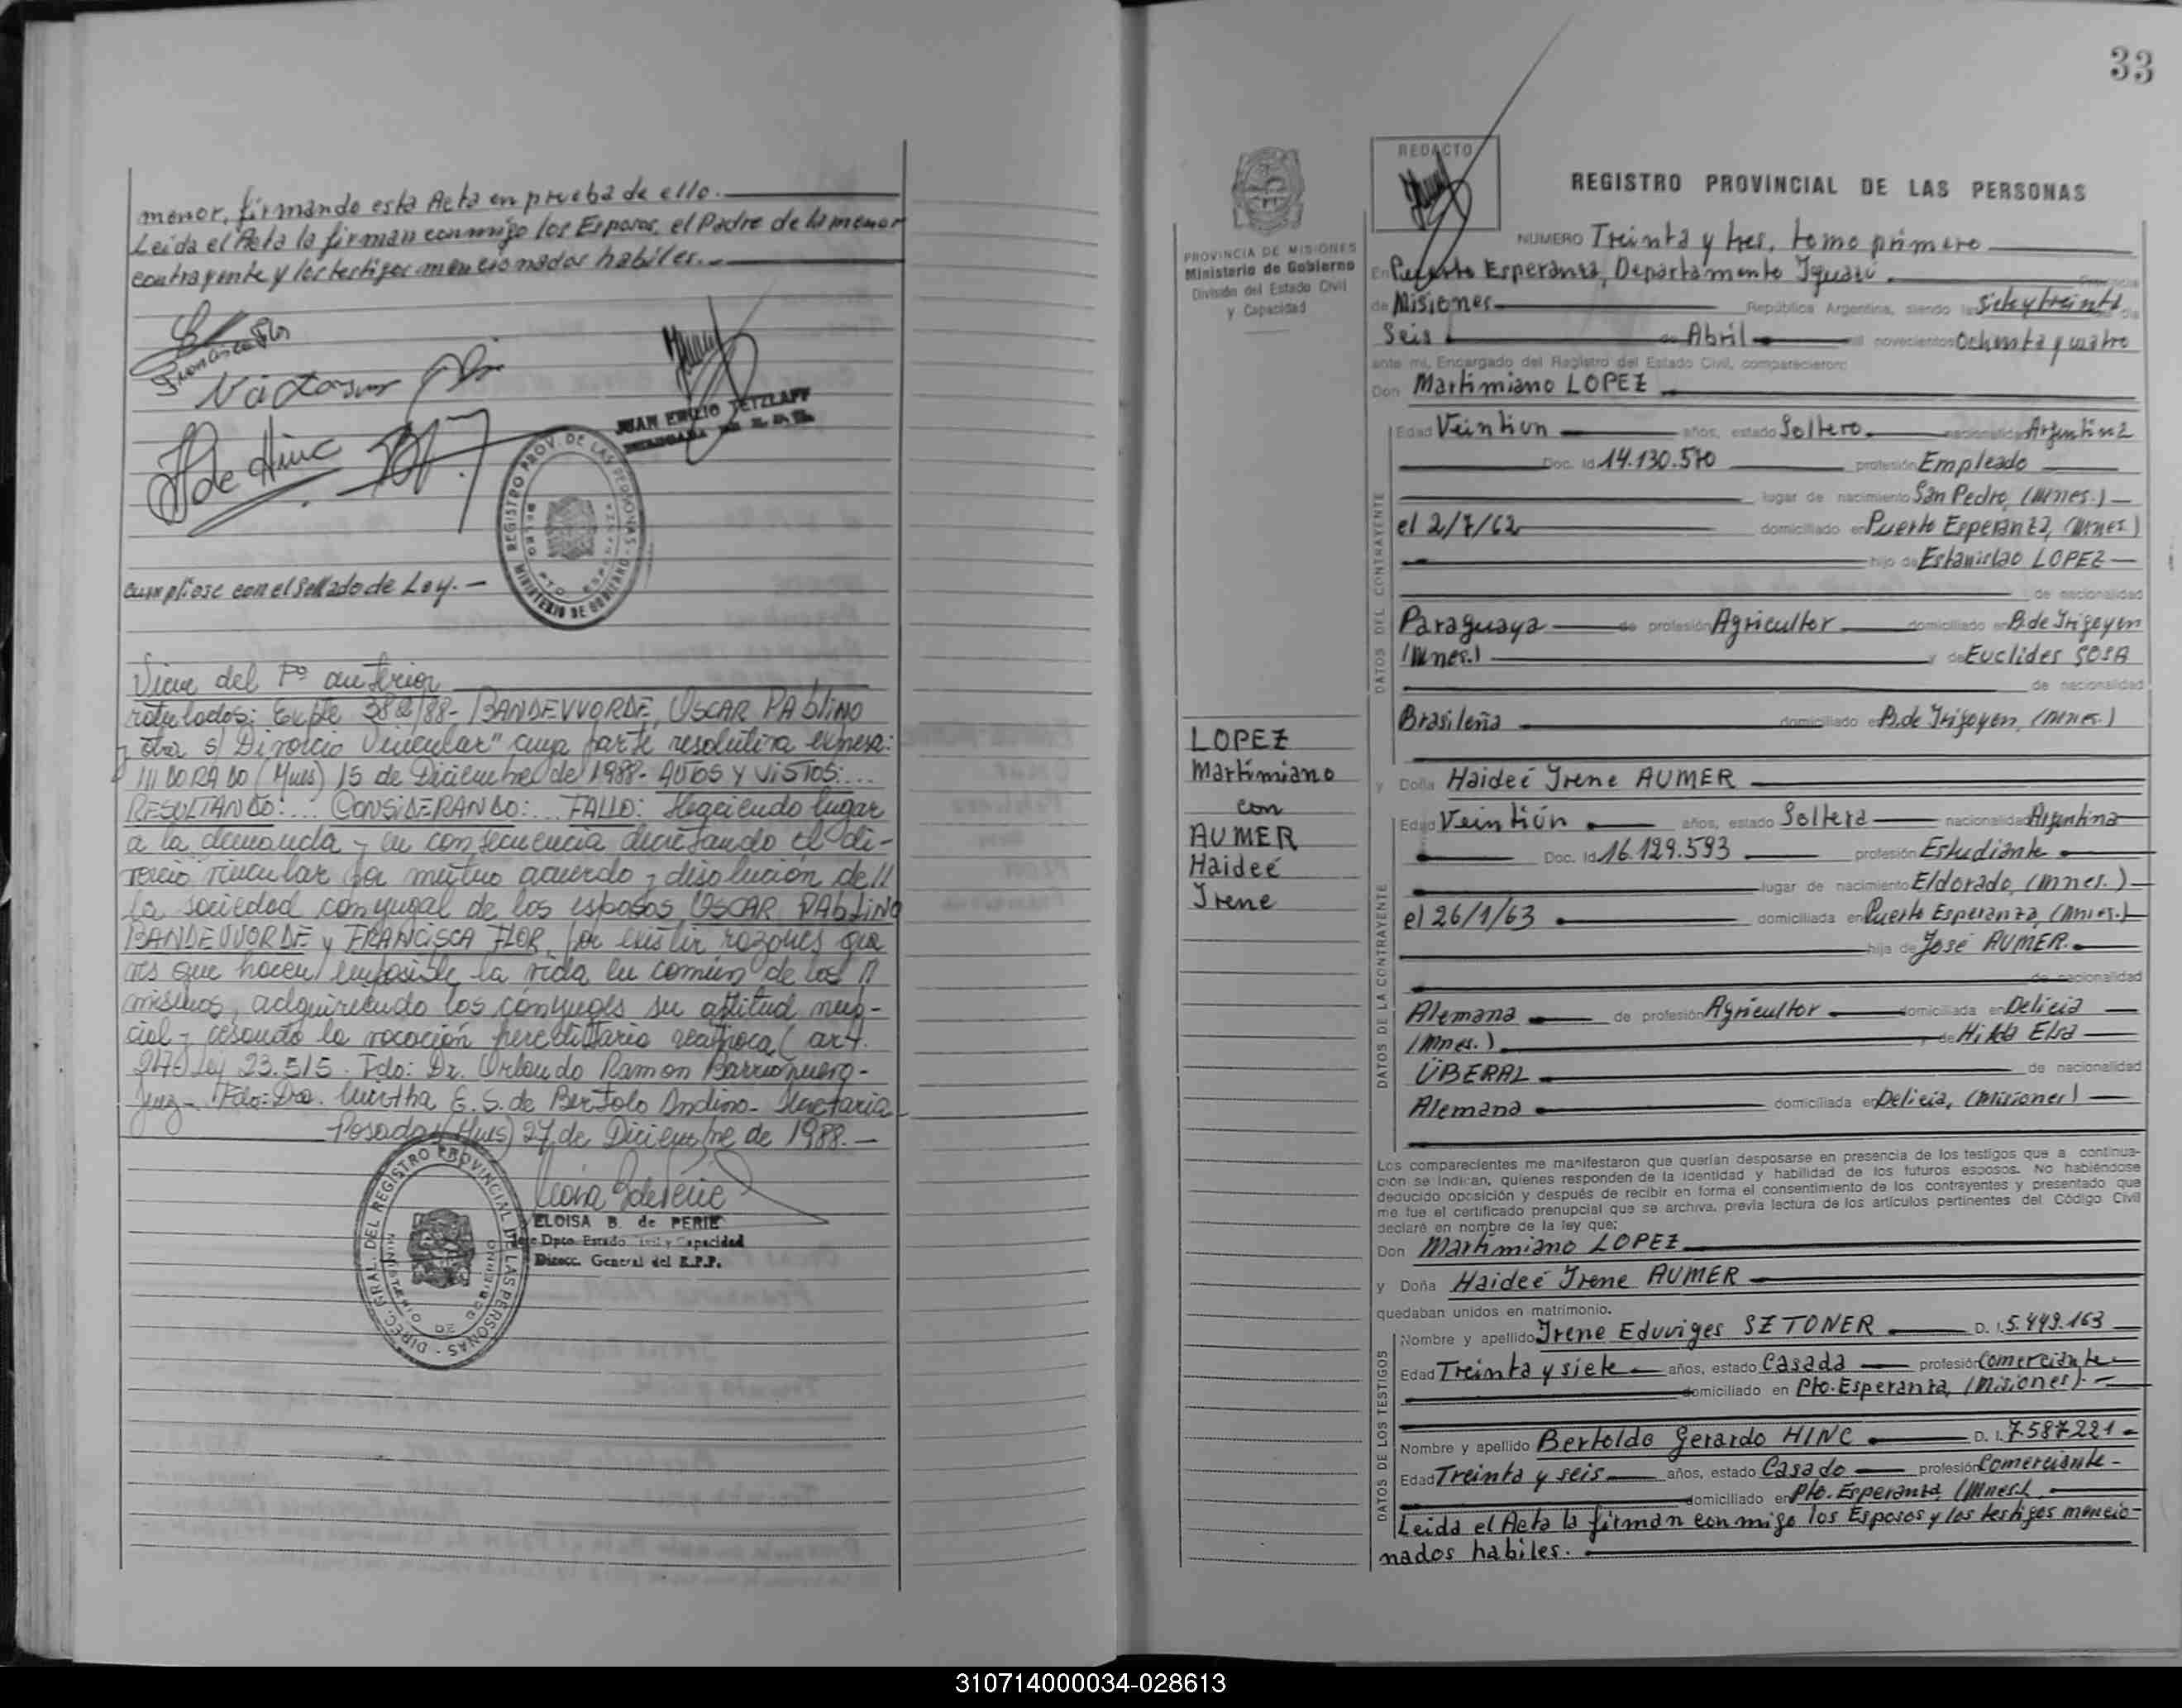 menor, firmando esta Acta en prueba de ello.
Leida el Acta la firman conmigo los Esposos, el Padre de la menor
contrayente y los testigos mencionados habiles.
JUAN EMILIO TETZLAFF
REGISTRO PROV. DE LAS PERSONAS - MINISTERIO DE GOBIERNO
cumpliose con el Sellado de Ley. -
Viene del Fº anterior
rotulados: Expte 382/88 - BANDEVVORDE, OSCAR PAbliNO
y otra s/ Divorcio Vincular" cuya parte resolutiva expresa:
DORADO (Mnes) 15 de Diciembre de 1988 - AUTOS Y VISTOS: ...
RESULTANDO: ... CONSIDERANDO: ... FALLO: Haciendo lugar
a la demanda y en consecuencia decretando el di-
vorcio vincular por mutuo acuerdo y disolución de //
la sociedad conyugal de los esposos OSCAR PAbliNO
BANDEVVORDE y FRANCISCA FLOR, por existir razones gra
ves que hacen imposible la vida en común de los //
mismos, adquiriendo los cónyuges su aptitud nup-
cial y cesando la vocación hereditaria recíproca (art.
217 Ley 23.515. Fdo: Dr. Orlando Ramon Barrionuevo -
Juez - Fdo: Dra. Mirtha E. S. de Bertolo Andino - Secretaria
Posadas (Mnes) 27 de Diciembre de 1988. -
DIREC. GRAL. DEL REGISTRO PROVINCIAL DE LAS PERSONAS
ELOISA B. de PERIE
Jefe Dpto. Estado Civil y Capacidad
Direcc. General del R.P.P.
33
PROVINCIA DE MISIONES
Ministerio de Gobierno
División del Estado Civil
y Capacidad
LOPEZ
Martimiano
con
AUMER
Haideé
Irene
REDACTO
REGISTRO PROVINCIAL DE LAS PERSONAS
NUMERO Treinta y tres, tomo primero
En Puerto Esperanza, Departamento Iguazú Provincia
de Misiones República Argentina, siendo las Siete y treinta dia
Seis de Abril mil novecientos Ochenta y cuatro
ante mi, Encargado del Registro del Estado Civil, comparecieron:
Don Martimiano LOPEZ
DATOS DEL CONTRAYENTE
Edad Veintiun años, estado Soltero nacionalidad Argentina
Doc. Id 14.130.570 profesión Empleado
lugar de nacimiento San Pedro, (Mnes.)
el 2/7/62 domiciliado en Puerto Esperanza, (Mnes.)
hijo de Estanislao LOPEZ
de nacionalidad
Paraguaya de profesión Agricultor domiciliado en B. de Irigoyen
(Mnes.) y de Euclides SOSA
de nacionalidad
Brasileña domiciliado en B. de Irigoyen, (Mnes.)
y Doña Haideé Irene AUMER
DATOS DE LA CONTRAYENTE
Edad Veintiún años, estado Soltera nacionalidad Argentina
Doc. Id 16.129.593 profesión Estudiante
lugar de nacimiento Eldorado, (Mnes.)
el 26/1/63 domiciliada en Puerto Esperanza, (Mnes.)
hija de José AUMER.
de nacionalidad
Alemana de profesión Agricultor domiciliada en Delicia
(Mnes.) y de Hilda Elsa
ÜBERAL de nacionalidad
Alemana domiciliada en Delicia, (Misiones)
Los comparecientes me manifestaron que querían desposarse en presencia de los testigos que a continua-
ción se indican, quienes responden de la identidad y habilidad de los futuros esposos. No habiéndose
deducido oposición y después de recibir en forma el consentimiento de los contrayentes y presentado que
me fue el certificado prenupcial que se archiva, previa lectura de los artículos pertinentes del Código Civil
declaré en nombre de la ley que:
Don Martimiano LOPEZ
y Doña Haideé Irene AUMER
quedaban unidos en matrimonio.
DATOS DE LOS TESTIGOS
Nombre y apellido Irene Eduviges SZTONER D. I. 5.449.163
Edad Treinta y siete años, estado Casada profesión Comerciante
domiciliado en Pto. Esperanza, (Misiones).
Nombre y apellido Bertoldo Gerardo HINC D. I. 7.587.221
Edad Treinta y seis años, estado Casado profesión Comerciante
domiciliado en Pto. Esperanza, (Mnes.).
Leida el Acta la firman conmigo los Esposos y los testigos mencio-
nados habiles.
310714000034-028613